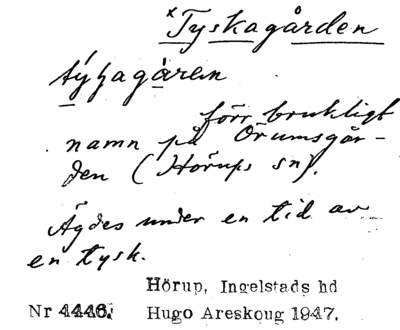 ×Tyskagården
förr brukligt
namn på Örumsgår-
den (Hörups sn).
Ägdes under en tid av
en tysk.
Hörup, Ingelstads hd
Nr 4446. Hugo Areskoug 1947.